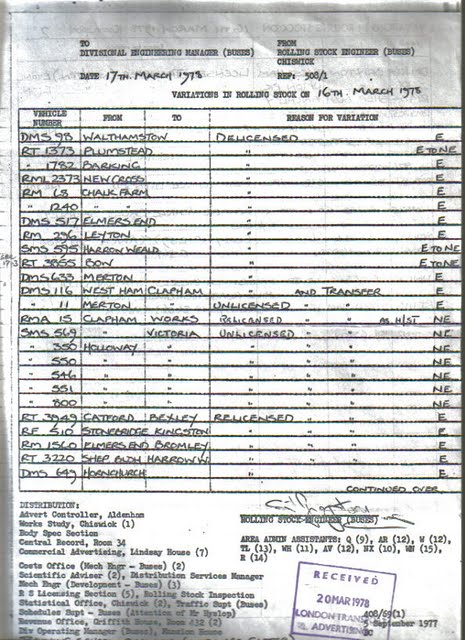 TO FROM
DIVISIONAL ENGINEERING MANAGER (BUSES) ROLLING STOCK ENGINEER (BUSES)
CHISWICK
DATE 17TH. MARCH 1978 REF: 508/1
VARIATIONS IN ROLLING STOCK ON 16TH. MARCH 1978
VEHICLE NUMBER FROM TO REASON FOR VARIATION
DMS 98 WALTHAMSTOW DELICENSED E
RT 1373 PLUMSTEAD " E TO NE
" 1782 BARKING " E
RML 2373 NEW CROSS " E
RM 68 CHALK FARM " E
" 1240 " " " E
DMS 517 ELMERS END " E
RM 296 LEYTON " E
SMS 595 HARROW WEALD " E TO NE
RT 3855 BOW " E TO NE
DMS 633 MERTON " E
DMS 116 WEST HAM CLAPHAM " AND TRANSFER E
" 11 MERTON " UNLICENSED " " E
RMA 15 CLAPHAM WORKS RELICENSED " " AS H/ST NE
SMS 569 " VICTORIA UNLICENSED " " NE
" 350 HOLLOWAY " " " " NE
" 550 " " " " " NE
" 546 " " " " " NE
" 551 " " " " " NE
" 800 " " " " " NE
RT 3549 CATFORD BEXLEY RELICENSED " " E
RF 510 STONEBRIDGE KINGSTON " " " E
RM 1560 ELMERS END BROMLEY " " " E
RT 3220 SHEP. BUSH HARROW W. " " " E
DMS 649 HORNCHURCH " E
CONTINUED OVER
DISTRIBUTION:
Advert Controller, Aldenham
Works Study, Chiswick (1) ROLLING STOCK ENGINEER (BUSES)
Body Spec Section
Central Record, Room 34 AREA ADMIN ASSISTANTS: Q (9), AR (12), W (12),
Commercial Advertising, Lindsay House (7) TL (13), WH (11), AV (12), NX (10), WN (15),
R (14)
Costs Office (Mech Engr - Buses) (2)
Scientific Adviser (2), Distribution Services Manager
Mech Engr (Development - Buses) (3)
R S Licensing Section (5), Rolling Stock Inspection
Statistical Office, Chiswick (2), Traffic Supt (Buses)
Schedules Supt - Buses (Attention of Mr Hyslop)
Revenue Office, Griffith House, Room 432 (2)
Div Operating Manager (Buses), Mansion House
RECEIVED
20 MAR 1978
LONDON TRANSPORT
ADVERTISING
408/59(1)
5 September 1977